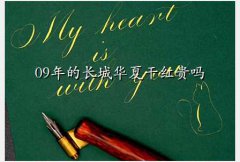 My heart
is
09年的长城华夏干红贵吗
with you